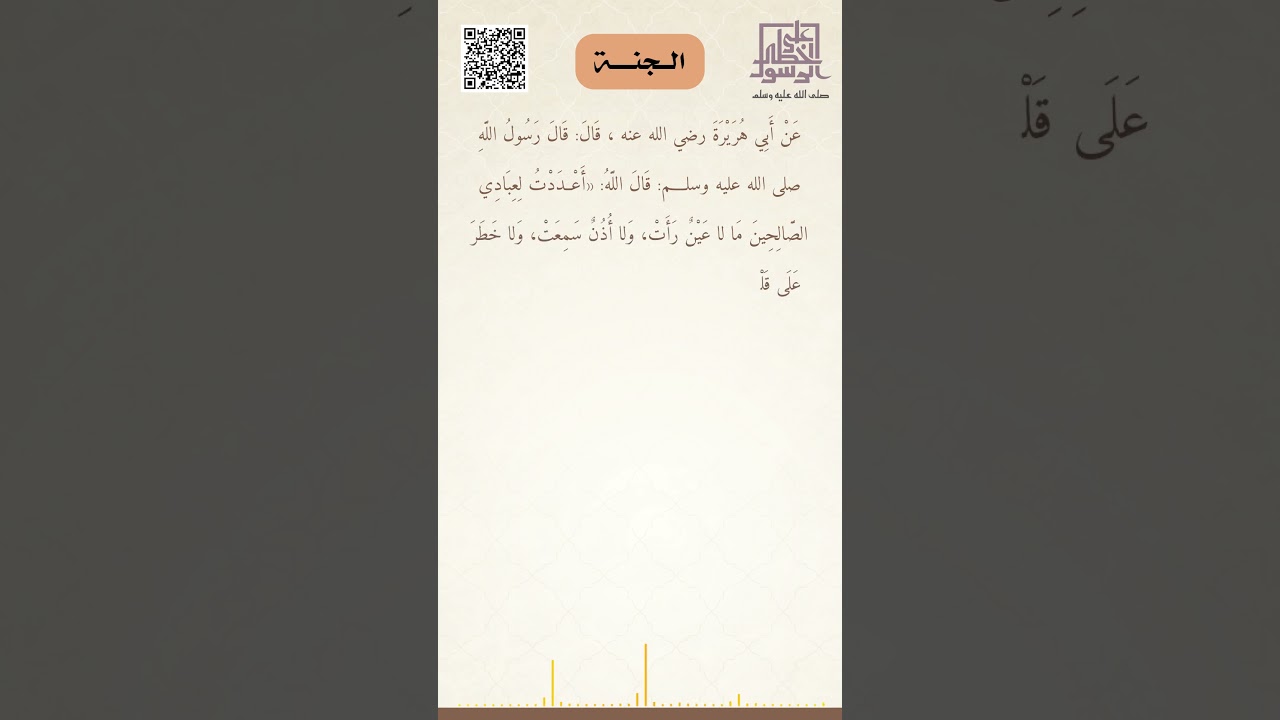 الـجنـــة
على خطى الرسول
صلى الله عليه وسلم
عَنْ أَبِي هُرَيْرَةَ رضي الله عنه ، قَالَ: قَالَ رَسُولُ اللّهِ
صلى الله عليه وسلـــم: قَالَ اللّهُ: «أَعْـدَدْتُ لِعِبَادِي
الصّالِحِينَ مَا لا عَيْنٌ رَأَتْ، وَلا أُذُنٌ سَمِعَتْ، وَلا خَطَرَ
عَلَى قَلْ
عَلَى قَلْ